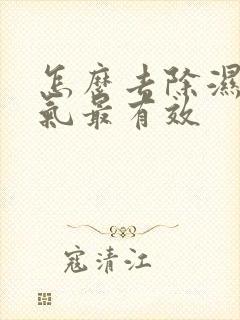 怎麼去除濕
氣最有效
寇清江